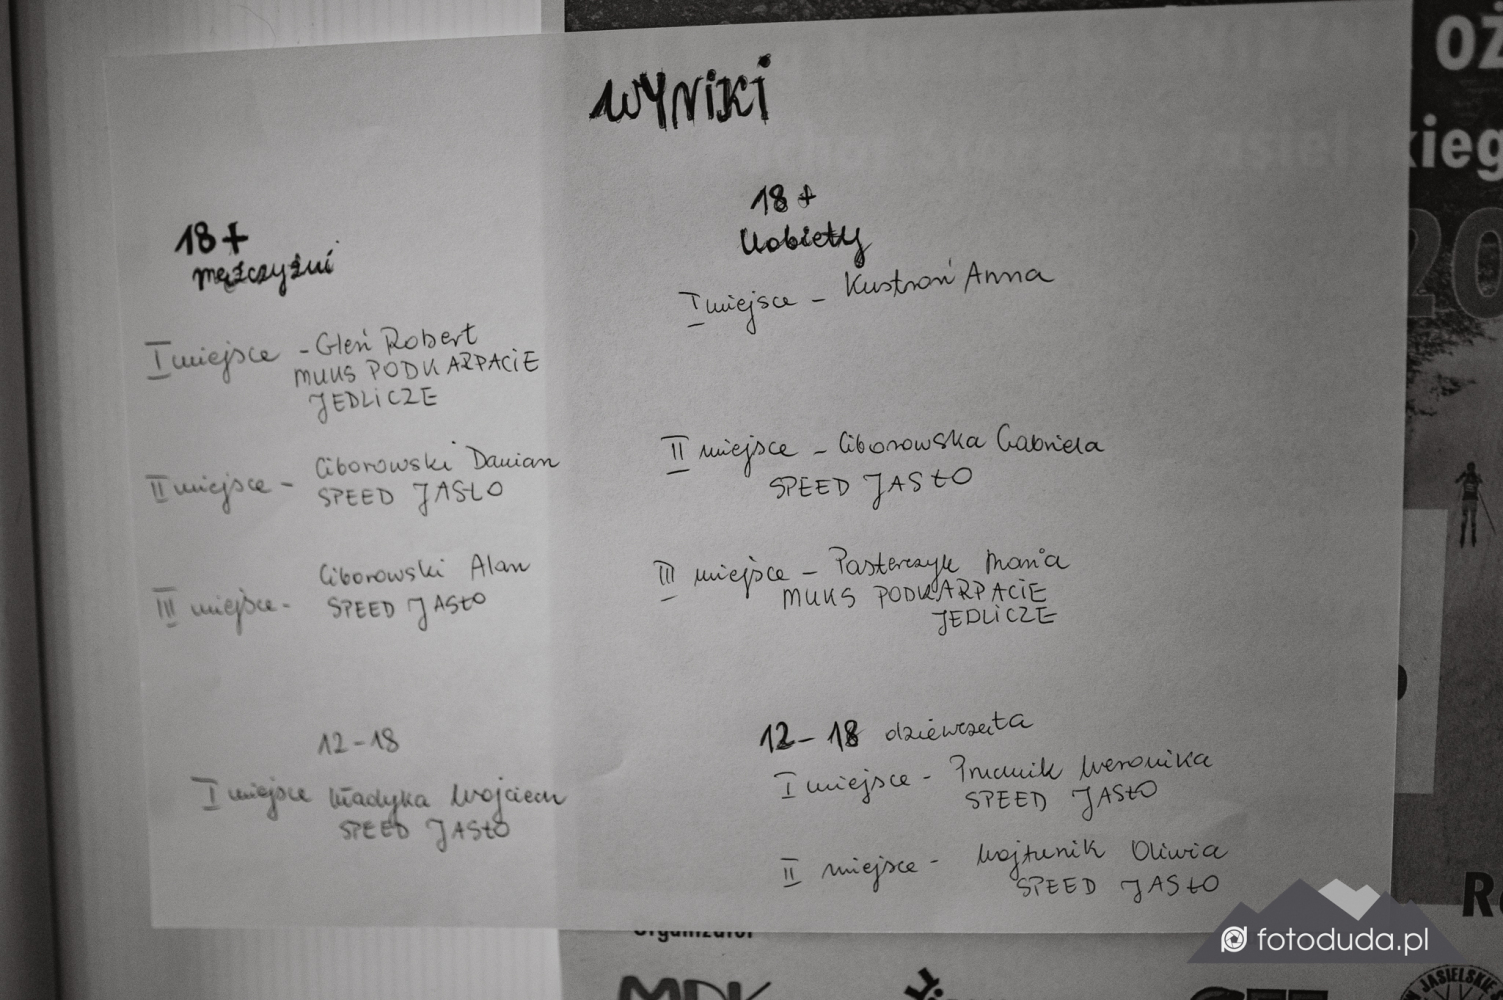 WYNIKI
18+
mężczyźni
I miejsce - Gleń Robert
MUKS PODKARPACIE
JEDLICZE
II miejsce - Ciborowski Damian
SPEED JASŁO
III miejsce - Ciborowski Alan
SPEED JASŁO
12-18
I miejsce Władyka Wojciech
SPEED JASŁO
18+
kobiety
I miejsce - Kustroń Anna
II miejsce - Ciborowska Gabriela
SPEED JASŁO
III miejsce - Pasterczyk Maria
MUKS PODKARPACIE
JEDLICZE
12-18 dziewczęta
I miejsce - Prucnik Weronika
SPEED JASŁO
II miejsce - Wojtunik Oliwia
SPEED JASŁO
Organizator
MDK
JASIELSKIE
fotoduda.pl